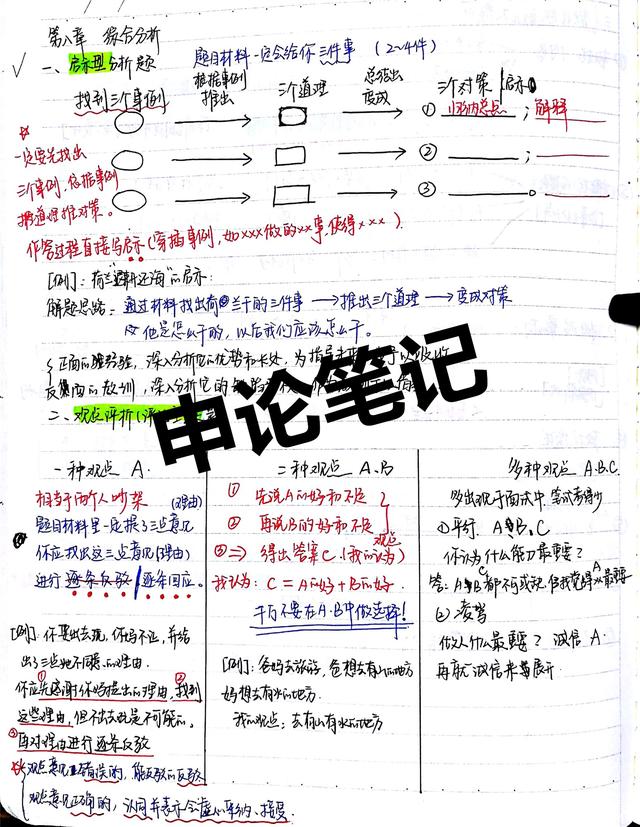 第八章 综合分析
一、启示型分析题 题目材料一定会给你三件事 (2~4件)
找到三个事例 根据事例推出 三个道理 总结出变成 三个对策/启示
① 归纳总点;解释
一定要先找出
三个事例,依据事例
据道理推对策。
②
③
作答过程直接写启示(穿插事例,如xxx做的xx事,使得xxx).
[例]:荷兰退耕还海的启示:
解题思路:通过材料找出荷兰干的三件事→推出三个道理→变成对策
他是怎么干的,以后我们应该怎么干。
正面的经验,深入分析它的优势和长处,为指导
反面的教训,深入分析它的
二、观点评析
申论笔记
一种观点 A.
相当于两个人吵架 (理由)
题目材料里一定提了三点意见
你应找出这三点意见(理由)
进行逐条反驳/逐条回应。
[例]:你要出去玩,你妈不让,并给
出了三点她不同意的理由.
你应先感谢你妈提出的理由,找到
这些理由,但不出去玩是不可能的。
再对理由进行逐条反驳
观点意见是错误的,能反驳的反驳
观点意见正确的,认同并表示会虚心采纳、接受
二种观点 A、B
① 先说A的好和不足
② 再说B的好和不足
观点
③ ⇒ 得出答案C.(我认为)
我认为:C=A的好+B的好.
千万不要在A.B中做选择!
[例]:爸妈去旅游,爸想去有山的地方
妈想去有水的地方.
我的观点:去有山有水的地方
多种观点 A.B.C.
多出现于面试中,笔试考得少
①平行. A、B、C
你认为什么能力最重要?
答:A B C都不可或缺,但我觉得A最重要
②凌驾
做人什么最重要?诚信 A.
再就诚信来展开.